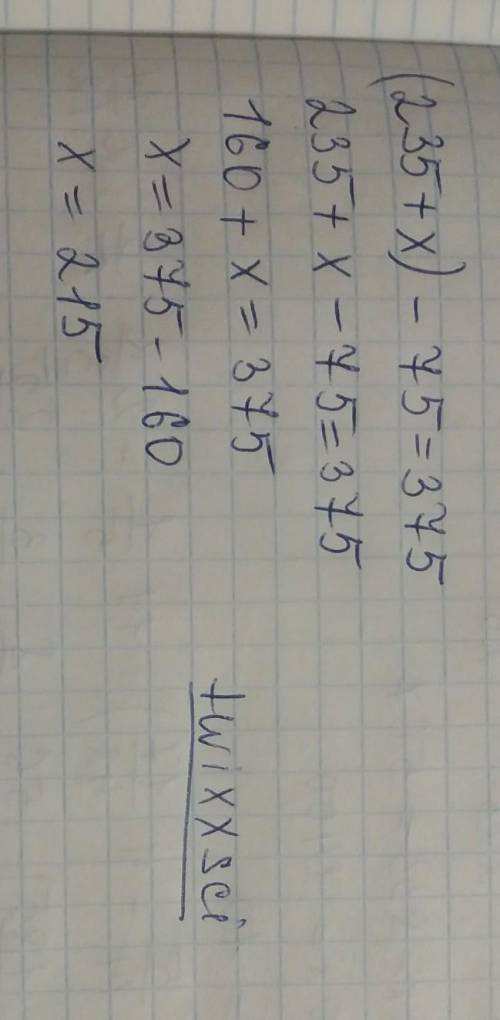 (235+x)-75=375
235+x-75=375
160+x=375
x=375-160
x=215
twixxsci